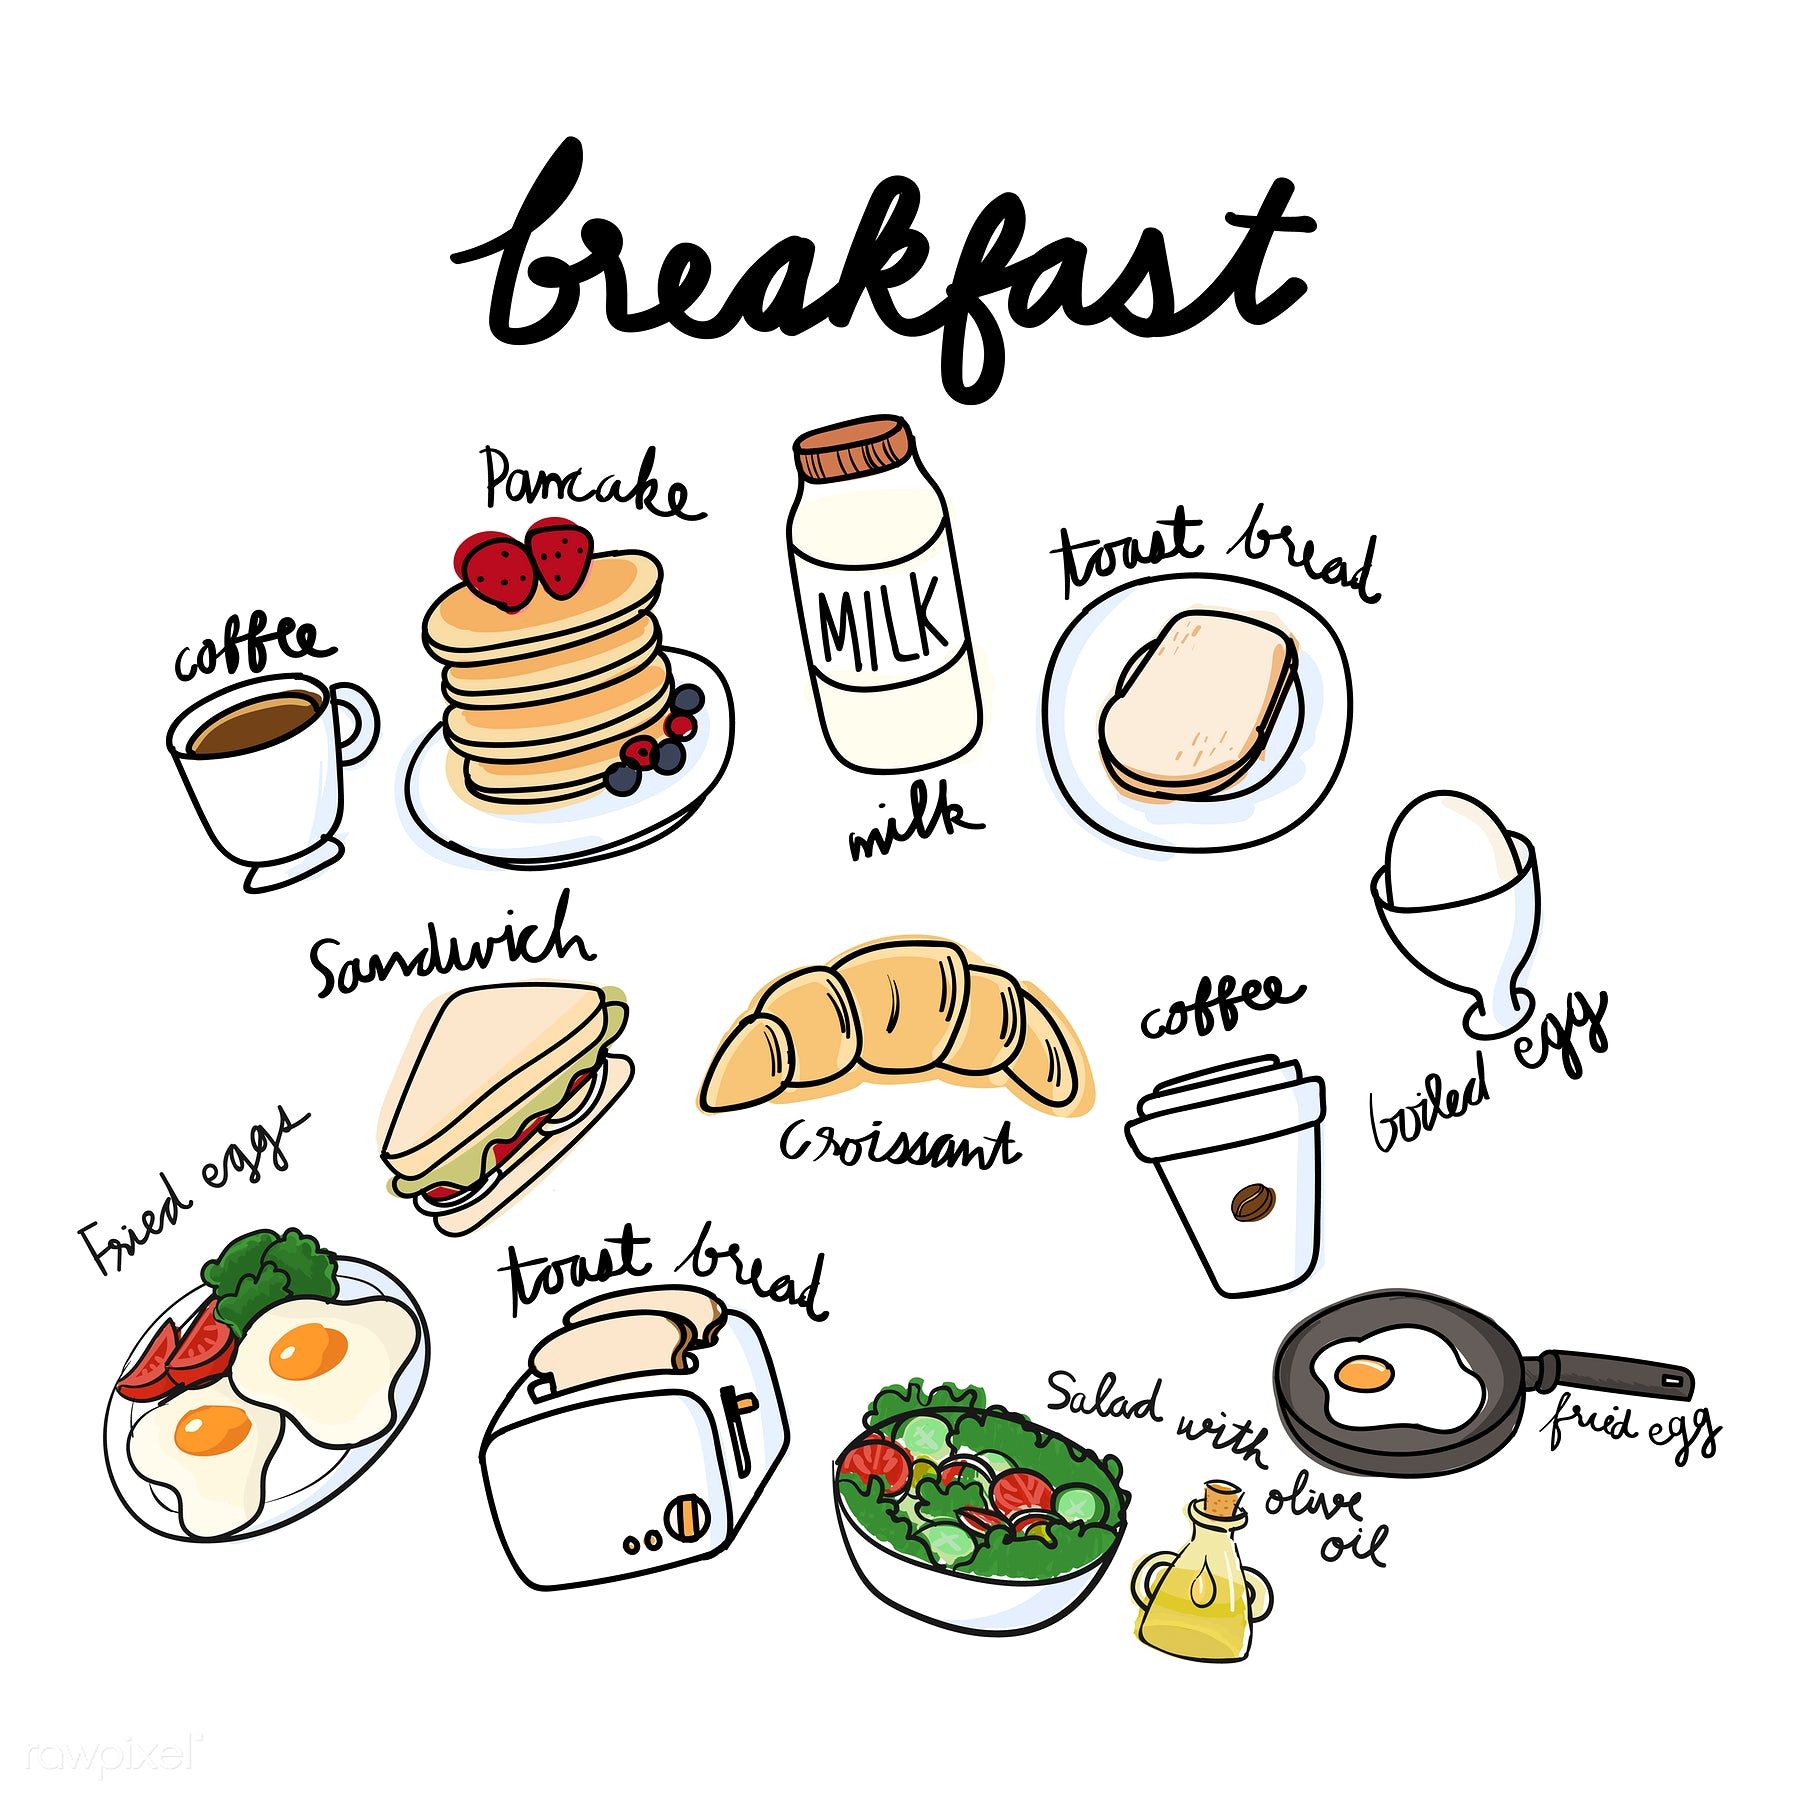 breakfast
Pancake
MILK
milk
toast bread
coffee
Sandwich
Croissant
coffee
boiled egg
Fried eggs
toast bread
Salad with
olive
oil
fried egg
rawpixel